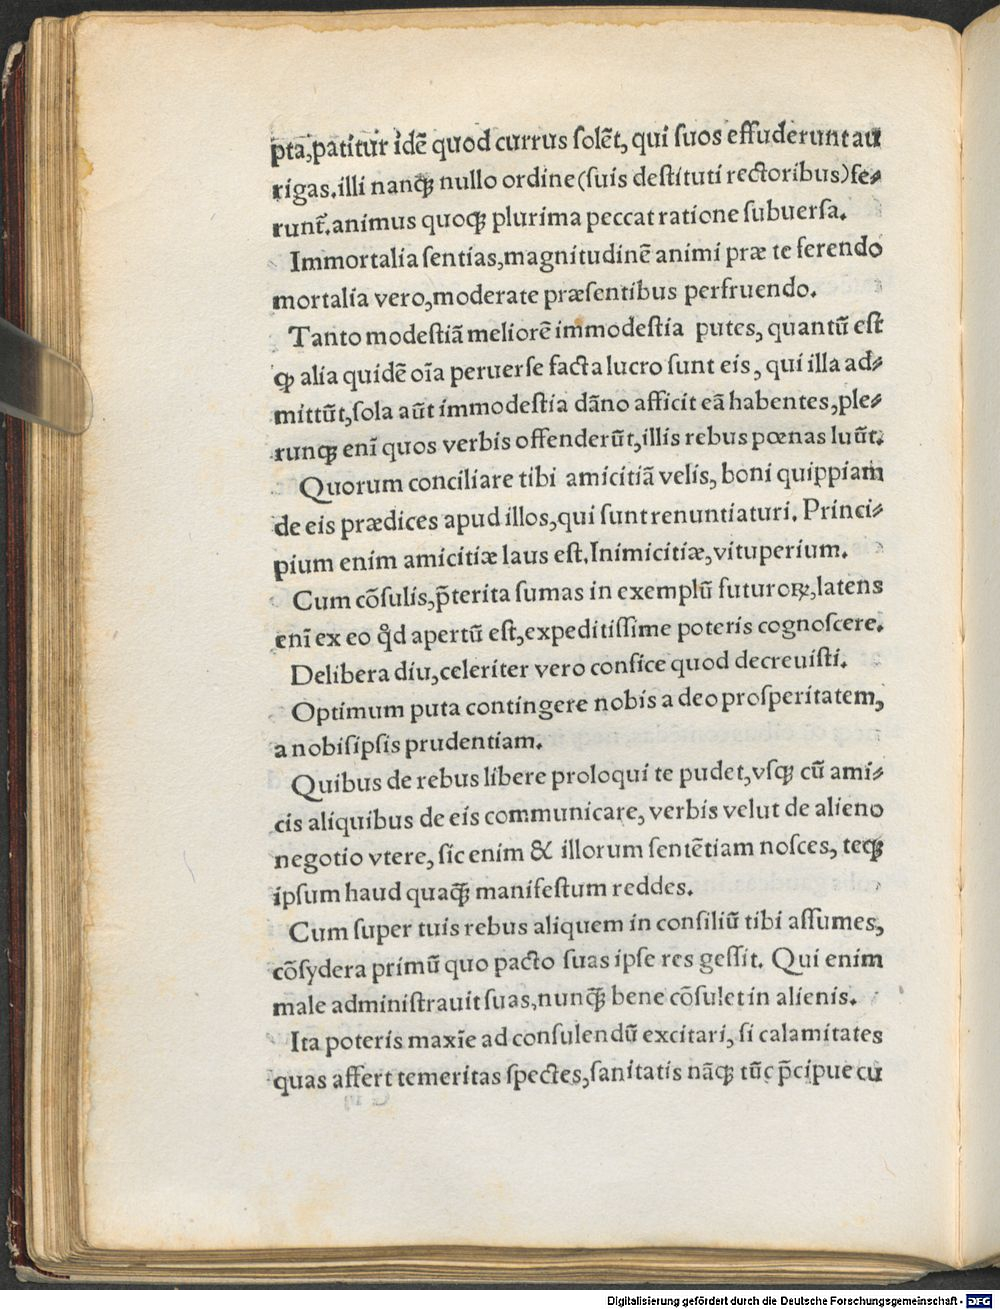 pta,patitur idē quod currus ſolēt, qui ſuos effuderunt au
rigas.illi nanꝗ nullo ordine(ſuis deſtituti rectoribus)fe⸗
runt̃.animus quoꝗ plurima peccat ratione ſubuerſa.
Immortalia ſentias,magnitudinē animi præ te ferendo
mortalia vero,moderate præſentibus perfruendo.
Tanto modeſtiā meliorē immodeſtia putes, quantū eſt
ꝙ alia quidē oīa peruerſe facta lucro ſunt eis, qui illa ad⸗
mittūt,ſola aūt immodeſtia dāno afficit eā habentes,ple⸗
runꝗ enī quos verbis offenderūt,illis rebus pœnas luūt.
Quorum conciliare tibi amicitiā velis, boni quippiam
de eis prædices apud illos,qui ſunt renuntiaturi. Princi⸗
pium enim amicitiæ laus eſt.Inimicitiæ,vituperium.
Cum cōſulis,p̄terita ſumas in exemplū futuroꝝ,latens
enī ex eo qͦd apertū eſt,expeditiſſime poteris cognoſcere.
Delibera diu,celeriter vero confice quod decreuiſti.
Optimum puta contingere nobis a deo proſperitatem,
a nobiſipſis prudentiam.
Quibus de rebus libere proloqui te pudet,vſꝗ cū ami⸗
cis aliquibus de eis communicare, verbis velut de alieno
negotio vtere, ſic enim & illorum ſentētiam noſces, teꝗ
ipſum haud quaꝗ̄ manifeſtum reddes.
Cum ſuper tuis rebus aliquem in conſiliū tibi aſſumes,
cōſydera primū quo pacto ſuas ipſe res geſſit. Qui enim
male adminiſtrauit ſuas,nunꝗ̄ bene cōſulet in alienis.
Ita poteris maxīe ad conſulendū excitari, ſi calamitates
quas affert temeritas ſpectes,ſanitatis nāꝗ tūc p̄cipue cu
Digitalisierung gefördert durch die Deutsche Forschungsgemeinschaft - DFG